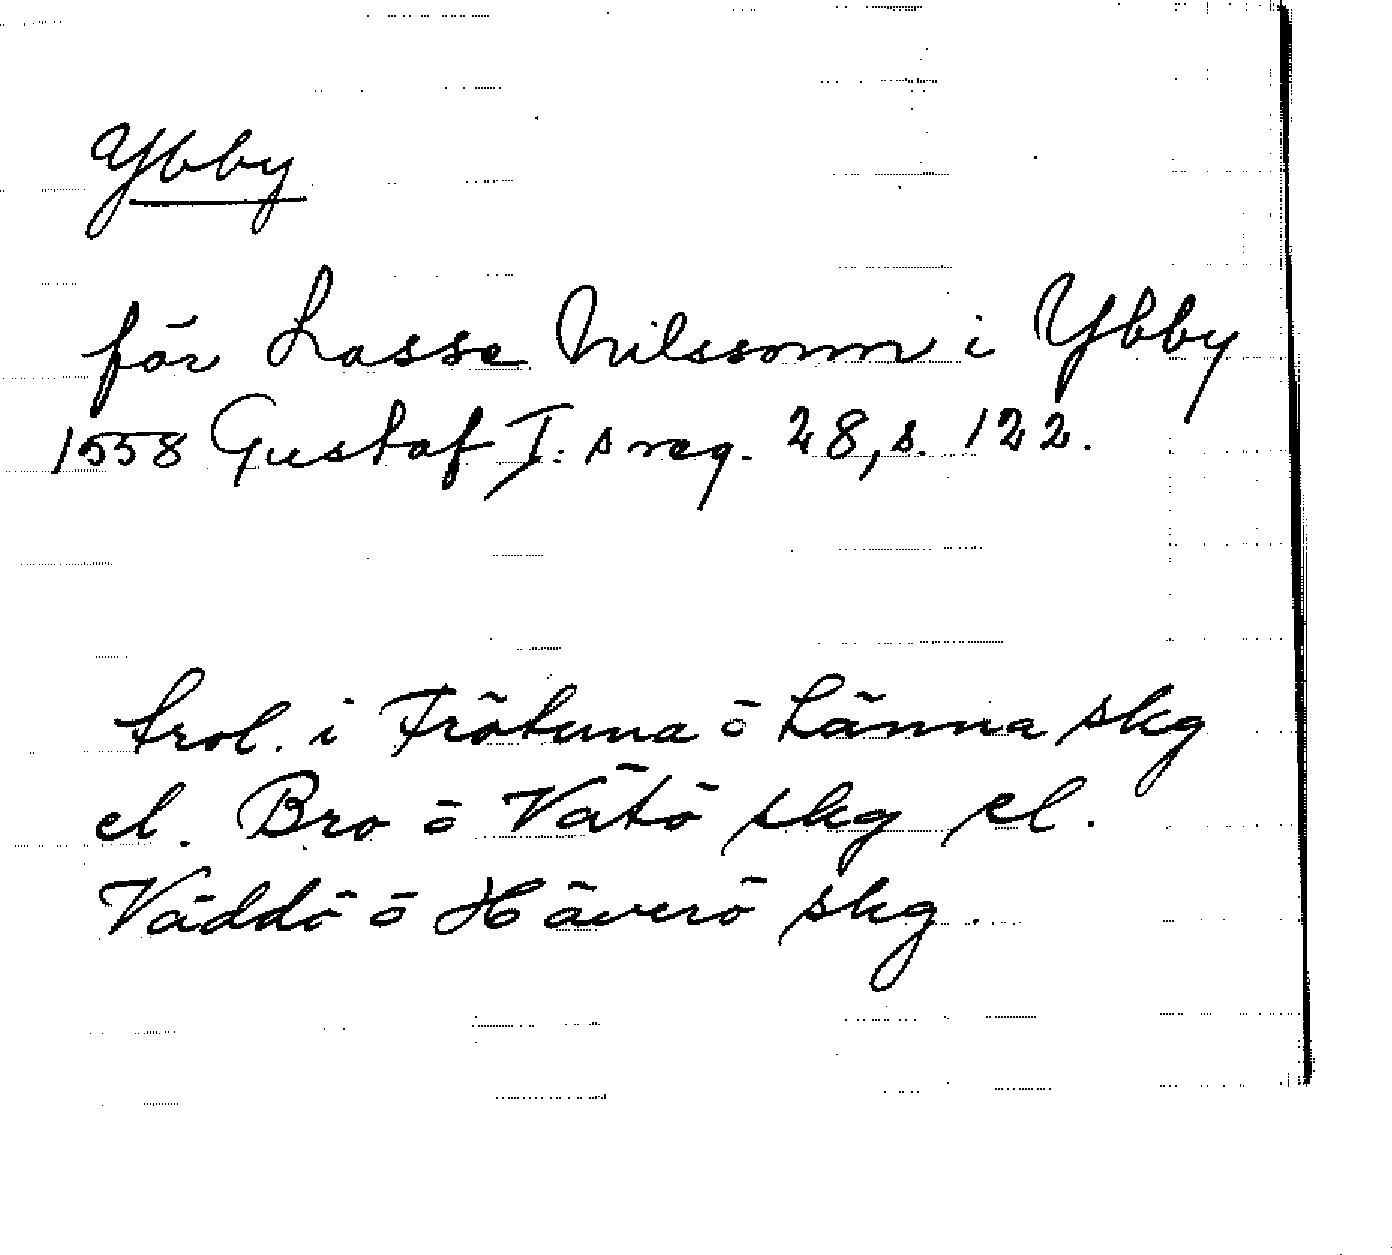 Ybby
för Lasse Nilssonn i Ybby
1558 Gustaf I:s reg. 28, s. 122.
trol. i Frötuna ö Länna skg
el. Bro ö Vätö skg el.
Väddö ö Häverö skg.